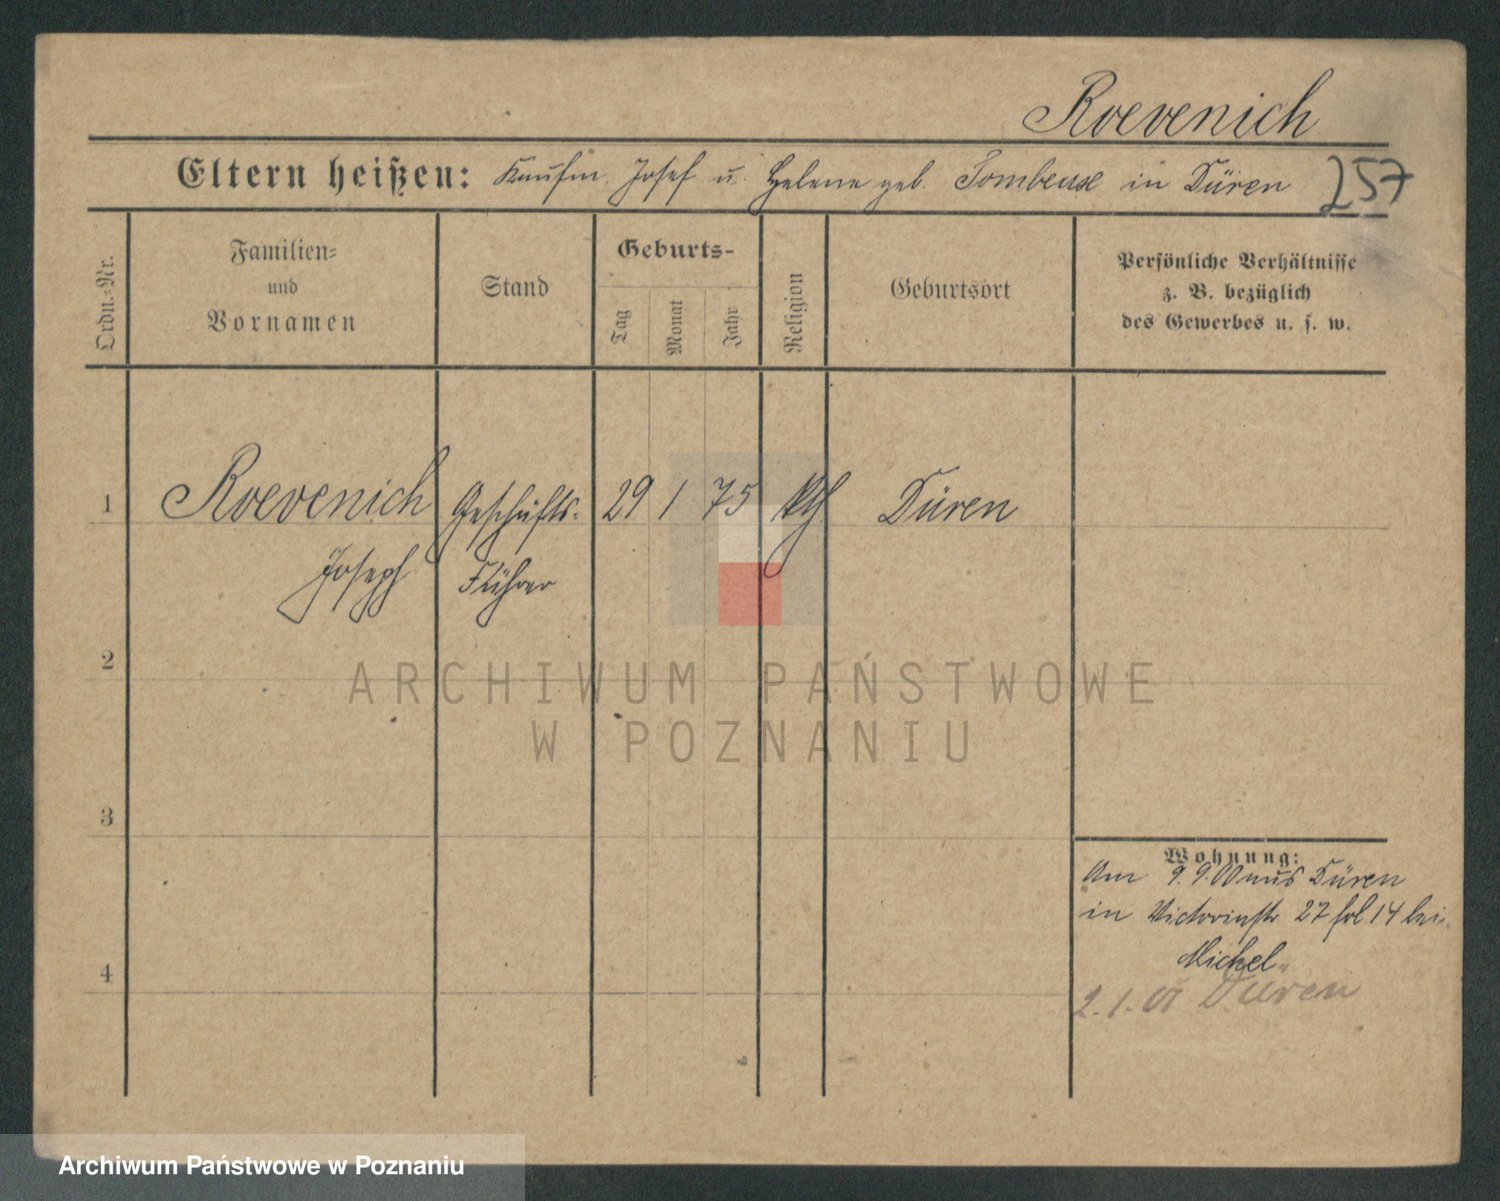 Roevenich
Eltern heißen: Kaufm. Josef u. Helene geb. Tombeuse in Düren 257
Ordn.-Nr.
Familien-
und
Vornamen
Stand
Geburts-
Tag
Monat
Jahr
Religion
Geburtsort
Persönliche Verhältnisse
z. B. bezüglich
des Gewerbes u. s. w.
1 Roevenich Geschäfts- 29 1 75 kth Düren
Joseph Führer
2
ARCHIWUM PAŃSTWOWE
W POZNANIU
3
Wohnung:
Am 9.9.00 aus Düren
in Victoriastr 27 hol 14 bei
Michel
4
2.1.01 Düren
Archiwum Państwowe w Poznaniu